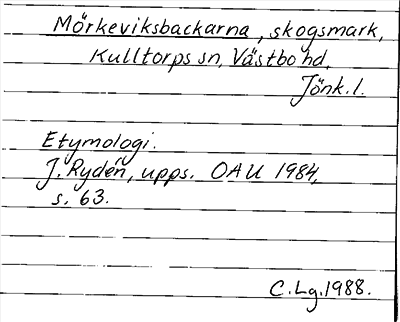 Mörkeviksbackarna, skogsmark,
Kulltorps sn, Västbo hd,
Jönk. l.
Etymologi.
J. Rydén, upps. OAU 1984,
s. 63.
C. Lg. 1988.